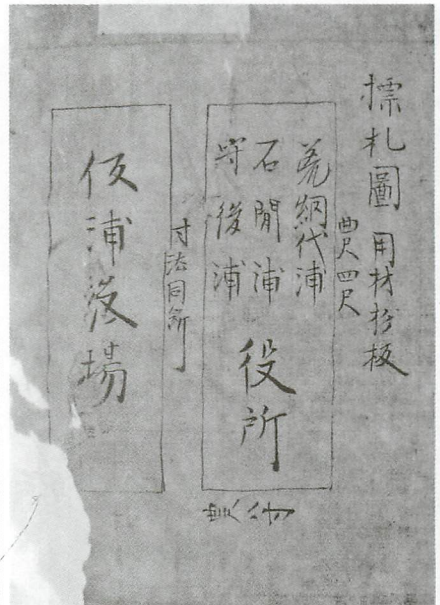 標札圖 用材杉板
曲尺四尺
荒網代浦
石間浦
守後浦
役所
寸法同断
仮浦役場